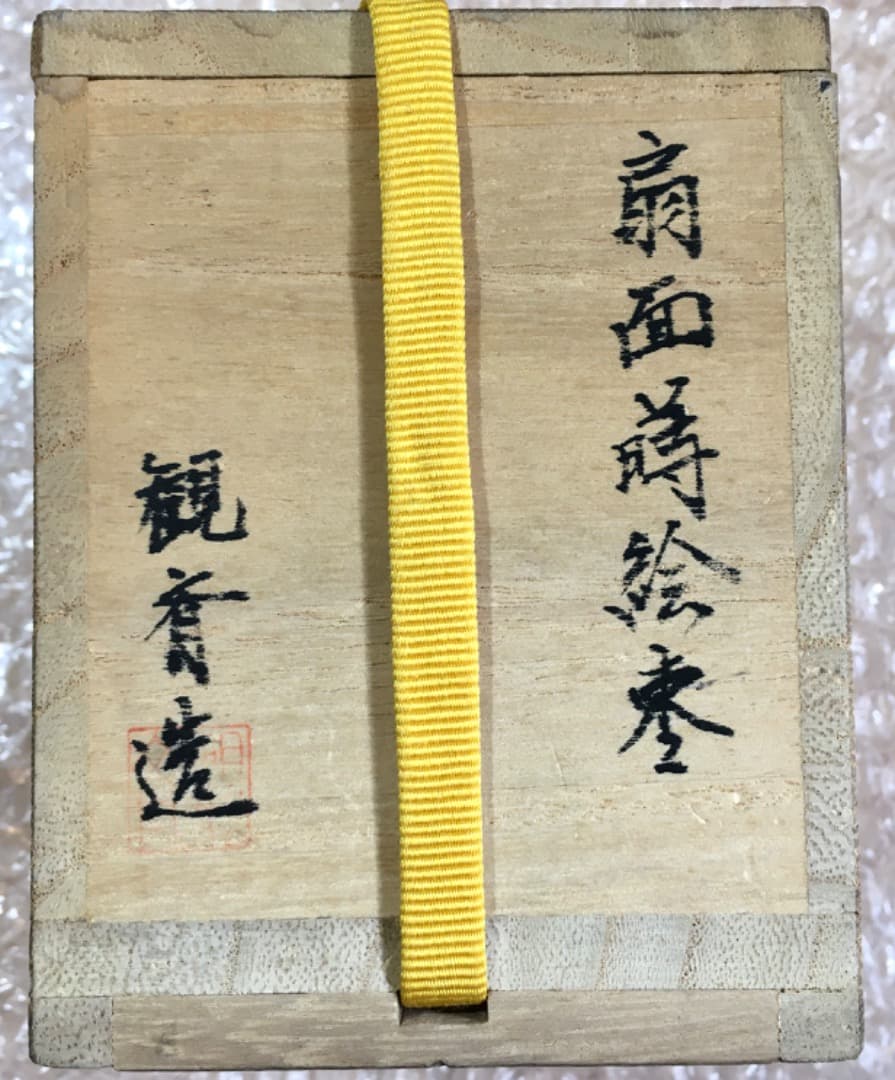 扇面蒔絵棗
観斎造